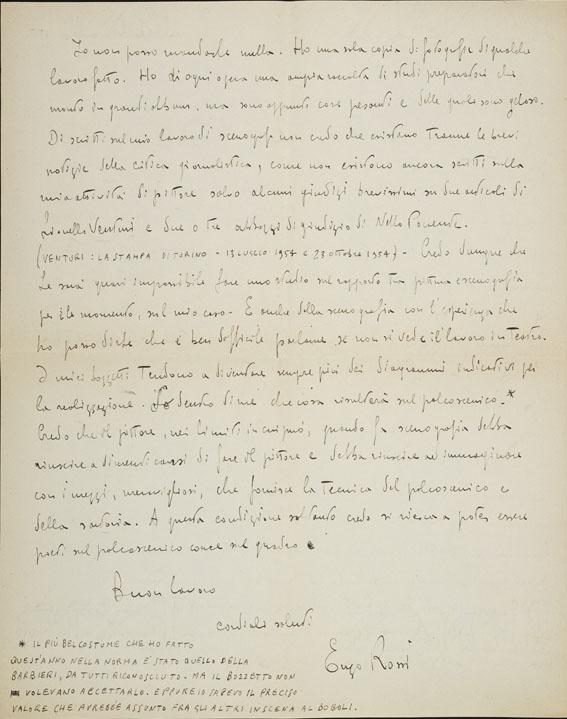 Io non posso mandarle nulla. Ho una sola copia di fotografie di qualche
lavoro fatto. Ho di ogni opera una ampia raccolta di studi preparatori che
monto in grandi album, ma sono appunto cose pesanti e delle quali sono geloso.
Di scritti sul mio lavoro di scenografo non credo che esistano tranne le brevi
notizie della critica giornalistica, come non esistono ancora scritti sulla
mia attività di pittore salvo alcuni giudizi brevissimi su due articoli di
Lionello Venturi e due o tre abbozzi di giudizio di Nello Ponente.
(VENTURI: LA STAMPA DI TORINO - 13 LUGLIO 1954 e 23 ottobre 1954) - Credo dunque che
Le sarà quasi impossibile fare uno studio sul rapporto tra pittura e scenografia
per il momento, sul mio caso. E anche della scenografia con l'esperienza che
ho posso dirle che è ben difficile parlarne se non si vede il lavoro in Teatro.
I miei bozzetti Tendono a diventare sempre più dei diagrammi indicativi per
la realizzazione. dentro di me che cosa risulterà sul palcoscenico. *
Credo che il pittore, nei limiti in cui può, quando fa scenografia debba
riuscire a dimenticarsi di fare il pittore e debba riuscire ad immaginare
con i mezzi, meravigliosi, che fornisce la Tecnica del palcoscenico e
della sartoria. A questa condizione soltanto credo si riesca a poter essere
poeti sul palcoscenico come sul quadro.
Buon lavoro
cordiali saluti
Enzo Rossi
* IL PIÙ BEL COSTUME CHE HO FATTO
QUEST'ANNO NELLA NORMA È STATO QUELLO DELLA
BARBIERI, DA TUTTI RICONOSCIUTO. MA IL BOZZETTO NON
VOLEVANO ACCETTARLO. EPPURE IO SAPEVO IL PRECISO
VALORE CHE AVREBBE ASSUNTO FRA GLI ALTRI IN SCENA AL BOBOLI.